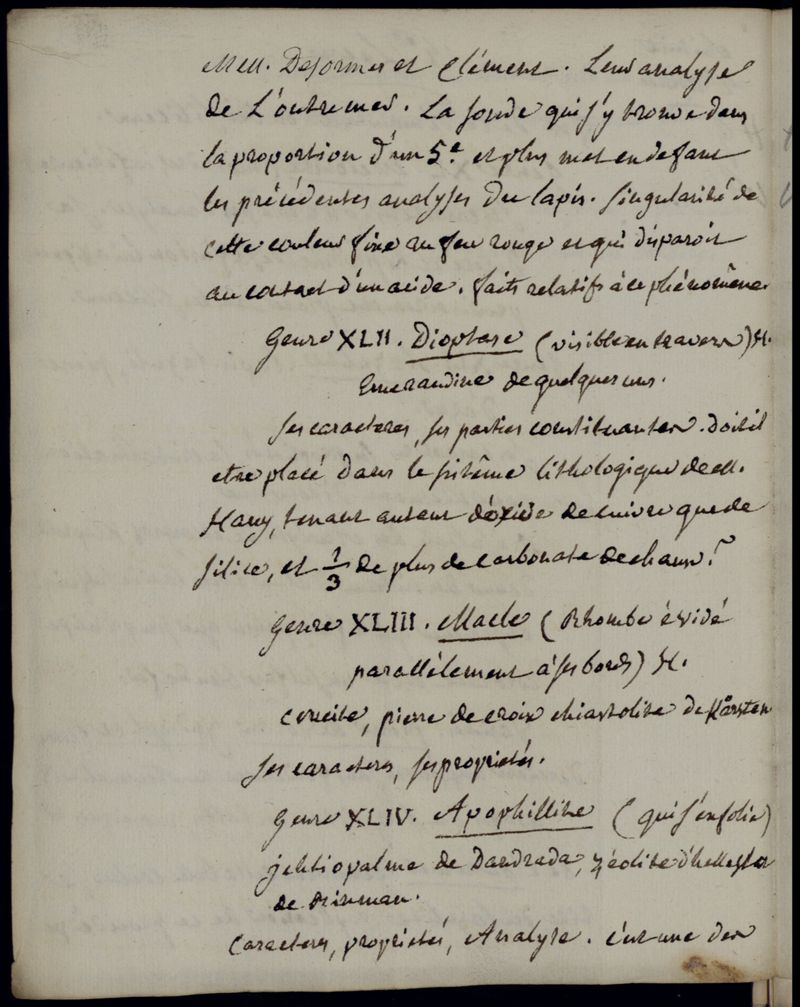 MM. Desormes et Clément. Leur analyse
de L'outremer. La soude qui s'y trouve dans
la proportion d'un 5.e et plus met en defaut
les précédentes analyses du lapis. singularité de
cette couleur fixe au feu rouge et qui disparoit
au contact d'un acide. faits relatifs à ce phénomène.
Genre XLII. Dioptase (visible en travers) H.
Emeraudine de quelques uns.
ses caracteres, ses parties constituantes. doit il
etre placé dans le sistême lithologique de M.
Hauy, tenant autant d'oxide de cuivre que de
silice, et 1/3 de plus de carbonate de chaux?
Genre XLIII. Macle (Rhombe évidé
parallélement à ses bords) H.
crucite, pierre de croix chiastolite de Kärsten
ses caracteres, ses proprietés.
Genre XLIV. Apophillite (qui s'enfolie)
ichtiopalme de Dandrada, zéolite d'hellesta
de rinman.
Caracteres, proprietés, Analyse. c'est une des